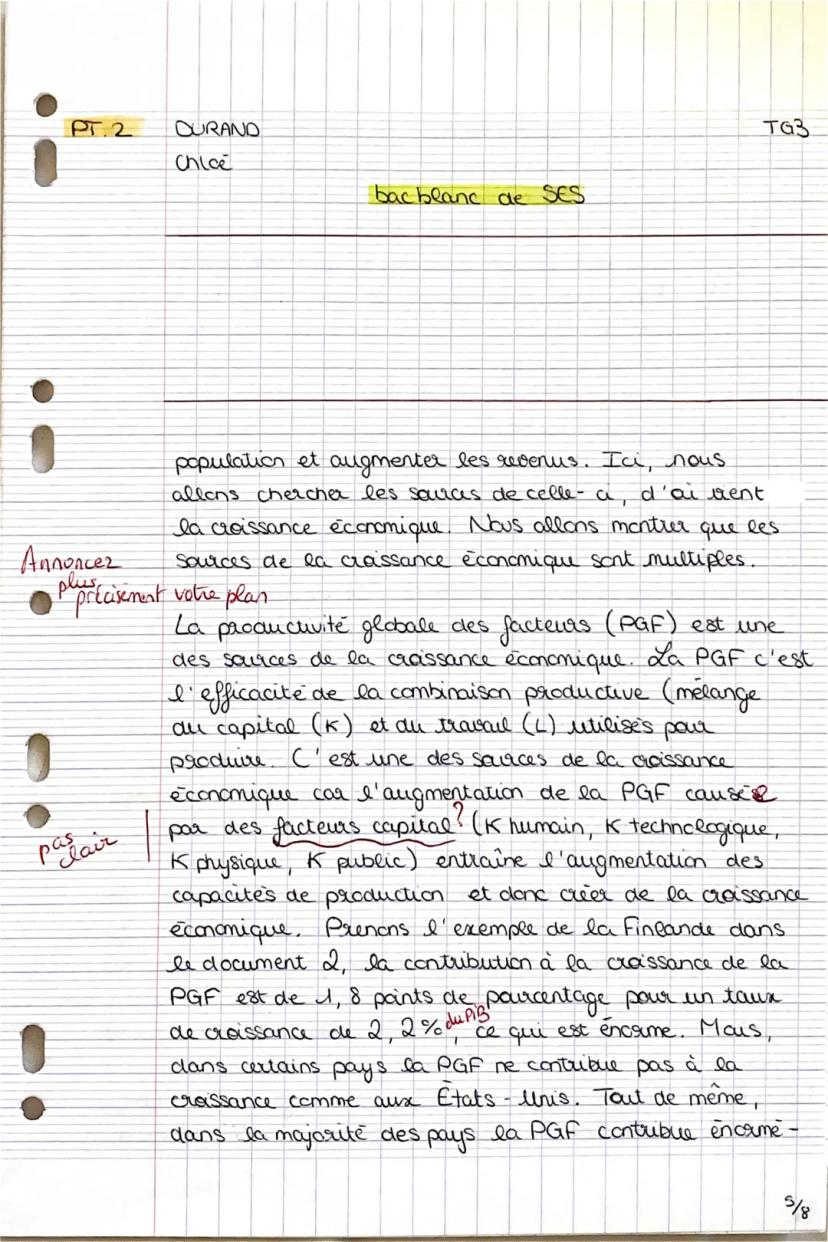 PT.2 DURAND TG3
Chloé
bac blanc de SES
population et augmenter les revenus. Ici, nous
allons chercher les sources de celle-ci, d'où vient
la croissance économique. Nous allons montrer que les
Annoncez sources de la croissance économique sont multiples.
plus
précisement votre plan
La productivité globale des facteurs (PGF) est une
des sources de la croissance économique. La PGF c'est
l'efficacité de la combinaison productive (mélange
du capital (K) et du travail (L) utilisés pour
produire. C'est une des sources de la croissance
économique car l'augmentation de la PGF causée
par des facteurs capital? (K humain, K technologique,
pas
clair
K physique, K public) entraîne l'augmentation des
capacités de production et donc créer de la croissance
économique. Prenons l'exemple de la Finlande dans
le document 2, la contribution à la croissance de la
PGF est de 1,8 points de pourcentage pour un taux
de croissance de 2,2% du PIB, ce qui est énorme. Mais,
dans certains pays la PGF ne contribue pas à la
croissance comme aux États-Unis. Tout de même,
dans la majorité des pays la PGF contribue énormé-
5/8